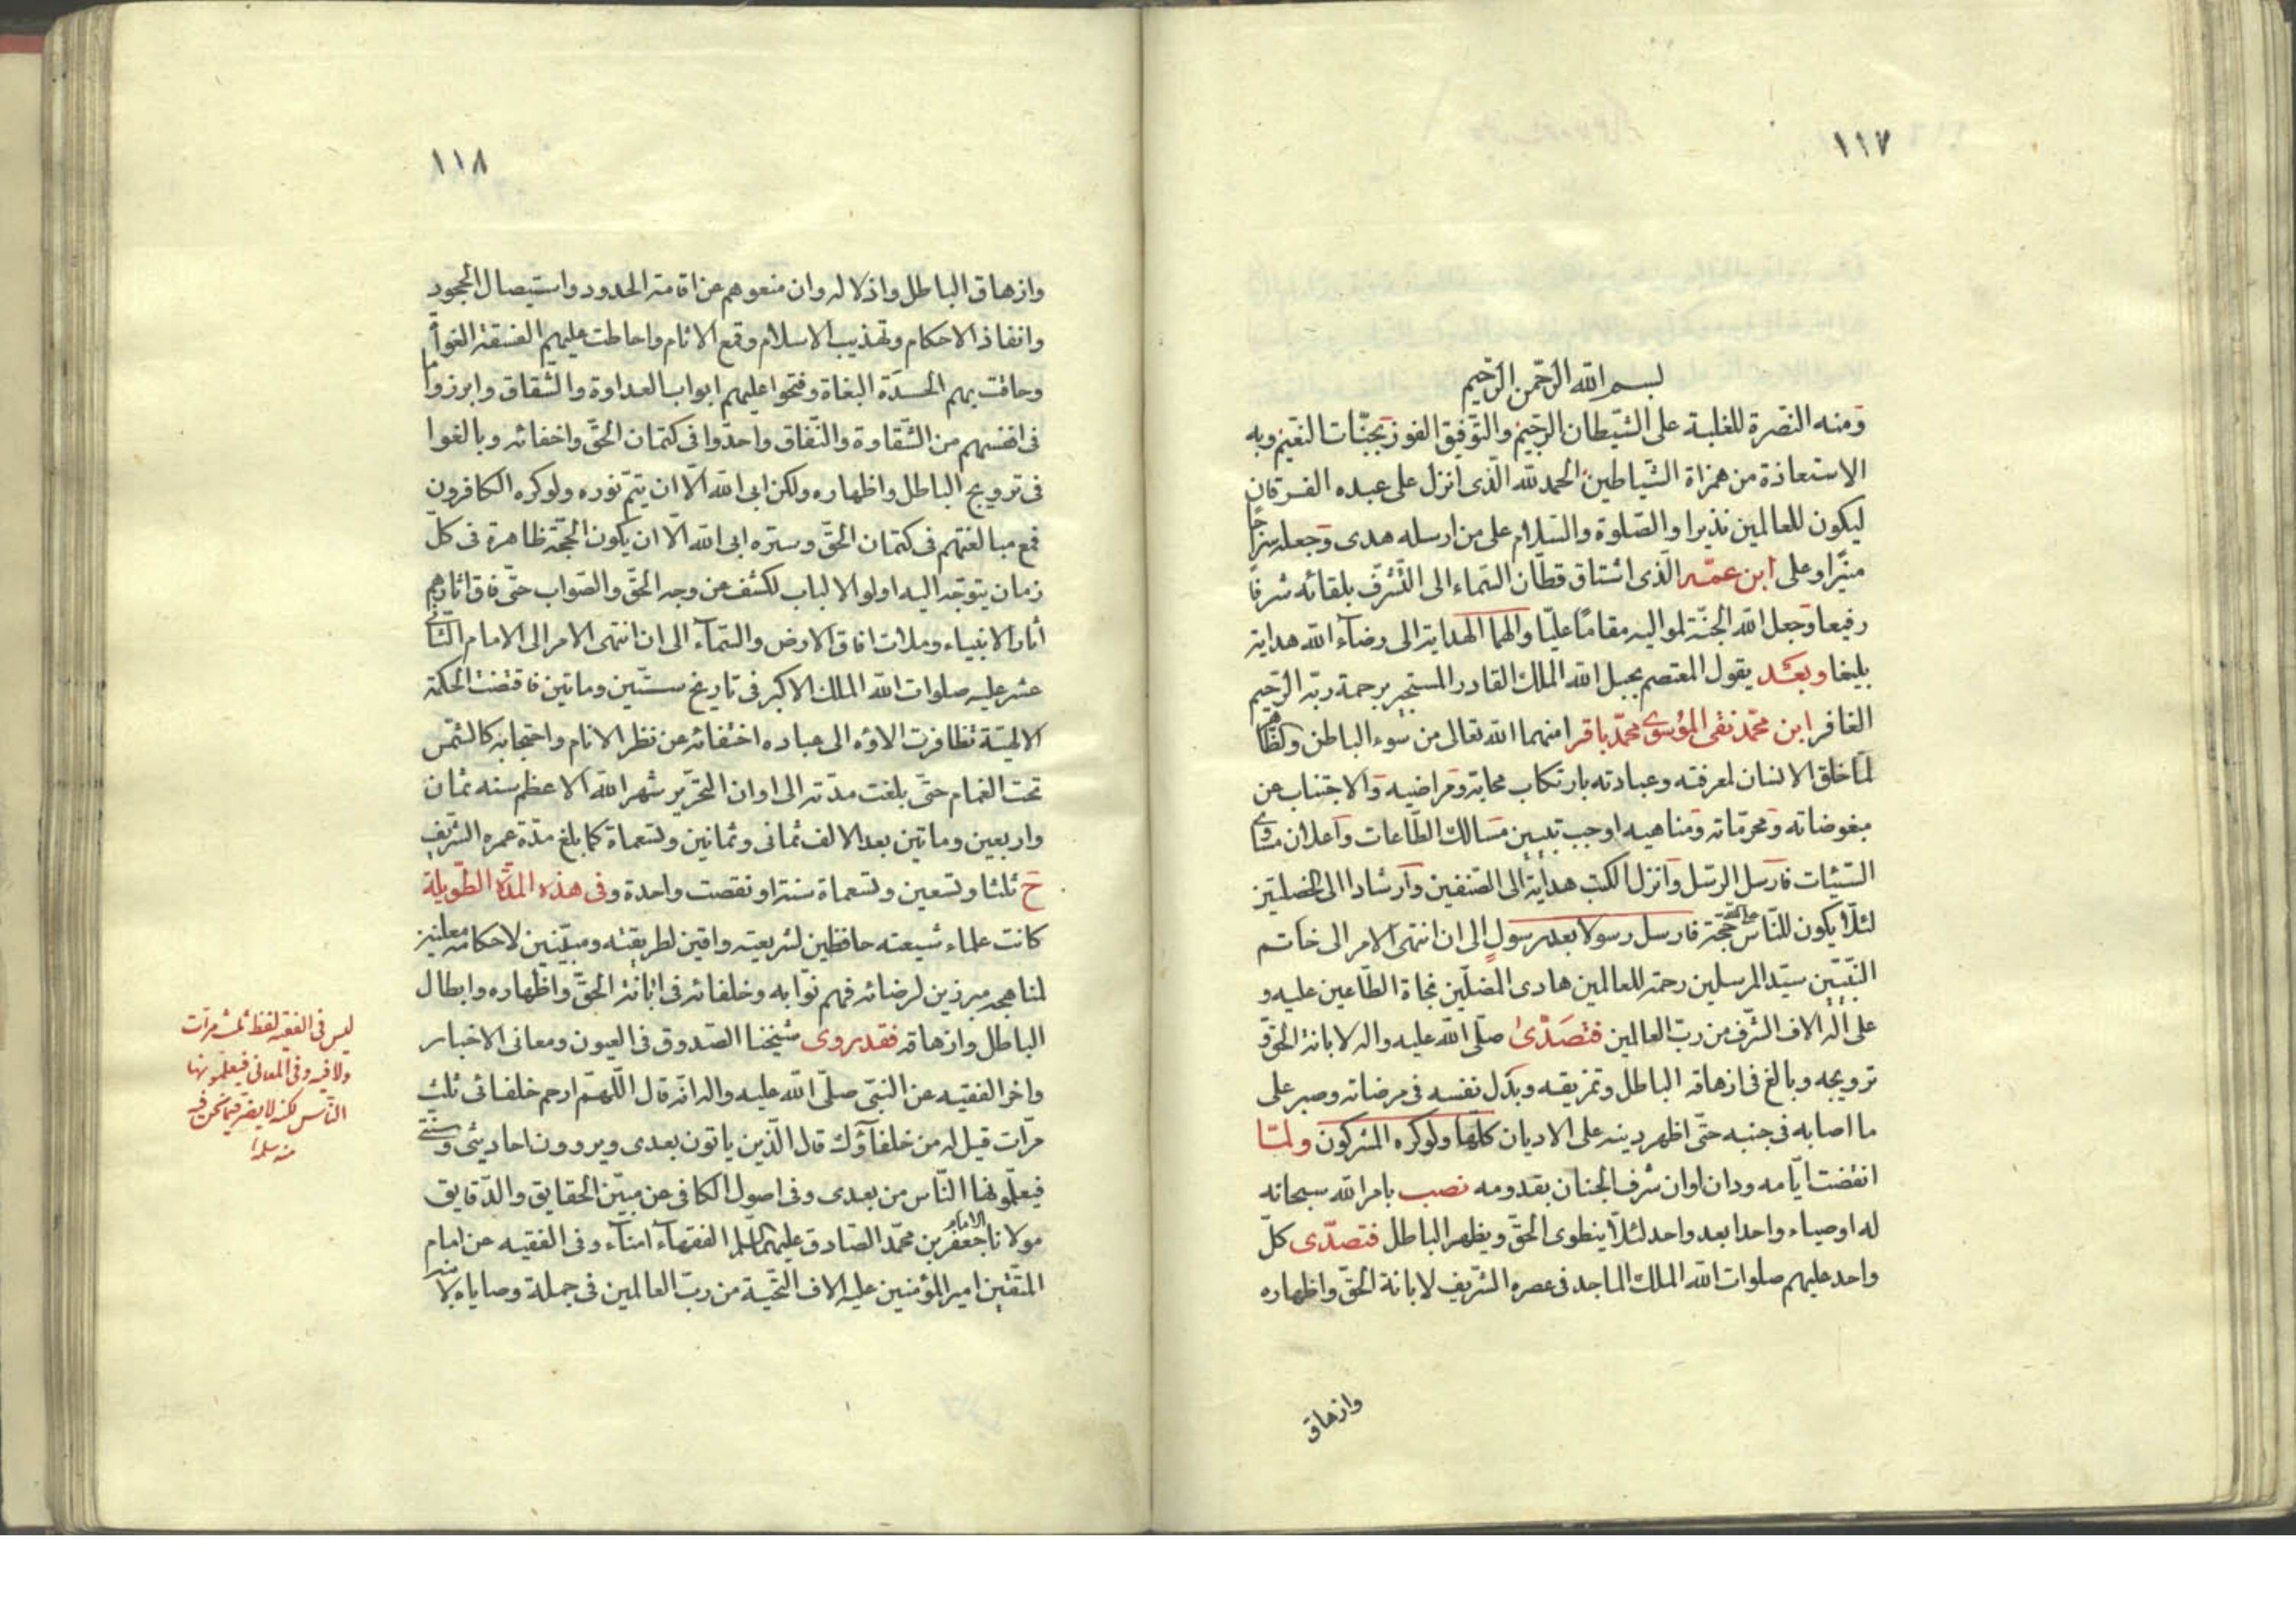 ١١٧
بسم الله الرحمن الرحيم
ومنه النصرة للغلبة على الشيطان الرجيم والتوفيق الفوز بجنات النعيم وبه
الاستعاذة من همزاة الشياطين الحمد لله الذى انزل على عبده الفرقان
ليكون للعالمين نذيرا والصلوة والسلام على من ارسله هدى وجعله سراجا
منيرا وعلى ابن عمه الذى اشتاق قطان السماء الى التشرف بلقائه شرفا
رفيعا وجعل الله الجنة لمواليه مقاما عليا والهما الهداية الى رضاء الله هداية
بليغا وبعد يقول المعتصم بحبل الله الملك القادر المستجير برحمة ربه الرحيم
الغافر ابن محمد نقى الموسوى محمد باقر امنهما الله تعالى من سوء الباطن والظاهر
لما خلق الانسان لمعرفته وعبادته بارتكاب محابه ومراضيه والاجتناب عن
مبغوضاته ومحرماته ومناهيه اوجب تبيين مسالك الطاعات واعلان مساوى
السيئات فارسل الرسل وانزل الكتب هداية الى الصنفين وارشادا الى الخصلتين
لئلا يكون للناس على الله حجة فارسل رسولا بعد رسول الى ان انتهى الامر الى خاتم
النبيين سيد المرسلين رحمة للعالمين هادى المضلين نجاة الطاعين عليه و
على اله الاف الشرف من رب العالمين فتصدى صلى الله عليه واله لابانة الحق و
ترويجه وبالغ فى ازهاقه الباطل وتمزيقه وبذل نفسه فى مرضاته وصبر على
ما اصابه فى جنبه حتى اظهر دينه على الاديان كلها ولو كره المشركون ولما
انقضت ايامه ودان اوان شرف الجنان بقدومه نصب بامر الله سبحانه
له اوصياء واحدا بعد واحد لئلا ينطوى الحق ويظهر الباطل فتصدى كل
واحد عليهم صلوات الله الملك الماجد فى عصره الشريف لابانة الحق واظهاره
وازهاق
١١٨
وازهاق الباطل واذلاله وان منعوهم عن اقامة الحدود واستيصال الجحود
وانفاذ الاحكام وتهذيب الاسلام وقمع الاثام واحاطت عليهم الفسقة الغواة
وحاقت بهم الحسدة البغاة وفتحوا عليهم ابواب العداوة والشقاق وابرزوا ما
فى انفسهم من الشقاوة والنفاق واحدوا فى كتمان الحق واخفائه وبالغوا
فى ترويج الباطل واظهاره ولكن ابى الله الا ان يتم نوره ولو كره الكافرون
فمع مبالغتهم فى كتمان الحق وستره ابى الله الا ان يكون الحجة ظاهرة فى كل
زمان يتوجه اليه اولو الالباب لكشف عن وجه الحق والصواب حتى فاق اثارهم
اثار الانبياء وملات افاق الارض والسماء الى ان انتهى الامر الى الامام الثانى
عشر عليه صلوات الله الملك الاكبر فى تاريخ ستين وماتين فاقتضت الحكمة
الالهية تظافرت الاؤه الى عباده اختفائه عن نظر الانام واحتجابه كالشمس
تحت الغمام حتى بلغت مدته الى اوان التحرير شهر الله الاعظم سنه ثمان
واربعين وماتين بعد الالف ثمانى وثمانين وتسعماة كما بلغ مدة عمره الشريف
ح ثلثا وتسعين وتسعماة سنة او نقصت واحدة وفى هذه المدة الطويلة
كانت علماء شيعته حافظين لشريعته واقين لطريقته ومبينين لاحكامه معلنين
لمناهجه مبرزين لرضائه فهم نوابه وخلفائه فى ابانة الحق واظهاره وابطال
الباطل وازهاقه فقد روى شيخنا الصدوق فى العيون ومعانى الاخبار
واخر الفقيه عن النبى صلى الله عليه واله انه قال اللهم ارحم خلفائى ثلث
مرات قيل له من خلفاؤك قال الذين ياتون بعدى ويروون احاديثى وسنتى
فيعلمونها الناس من بعدى وفى اصول الكافى عن مبين الحقايق والدقايق
مولانا الامام جعفر بن محمد الصادق عليهما السلم الفقهاء امناء وفى الفقيه عن امام
المتقين امير المؤمنين عليه الاف التحية من رب العالمين فى جملة وصاياه لابنه
ليس فى الفقيه لفظ ثلث مرات
ولا فيه وفى المعانى فيعلمونها
الناس لكنه لا يضر فيما نحن فيه
منه سلمه